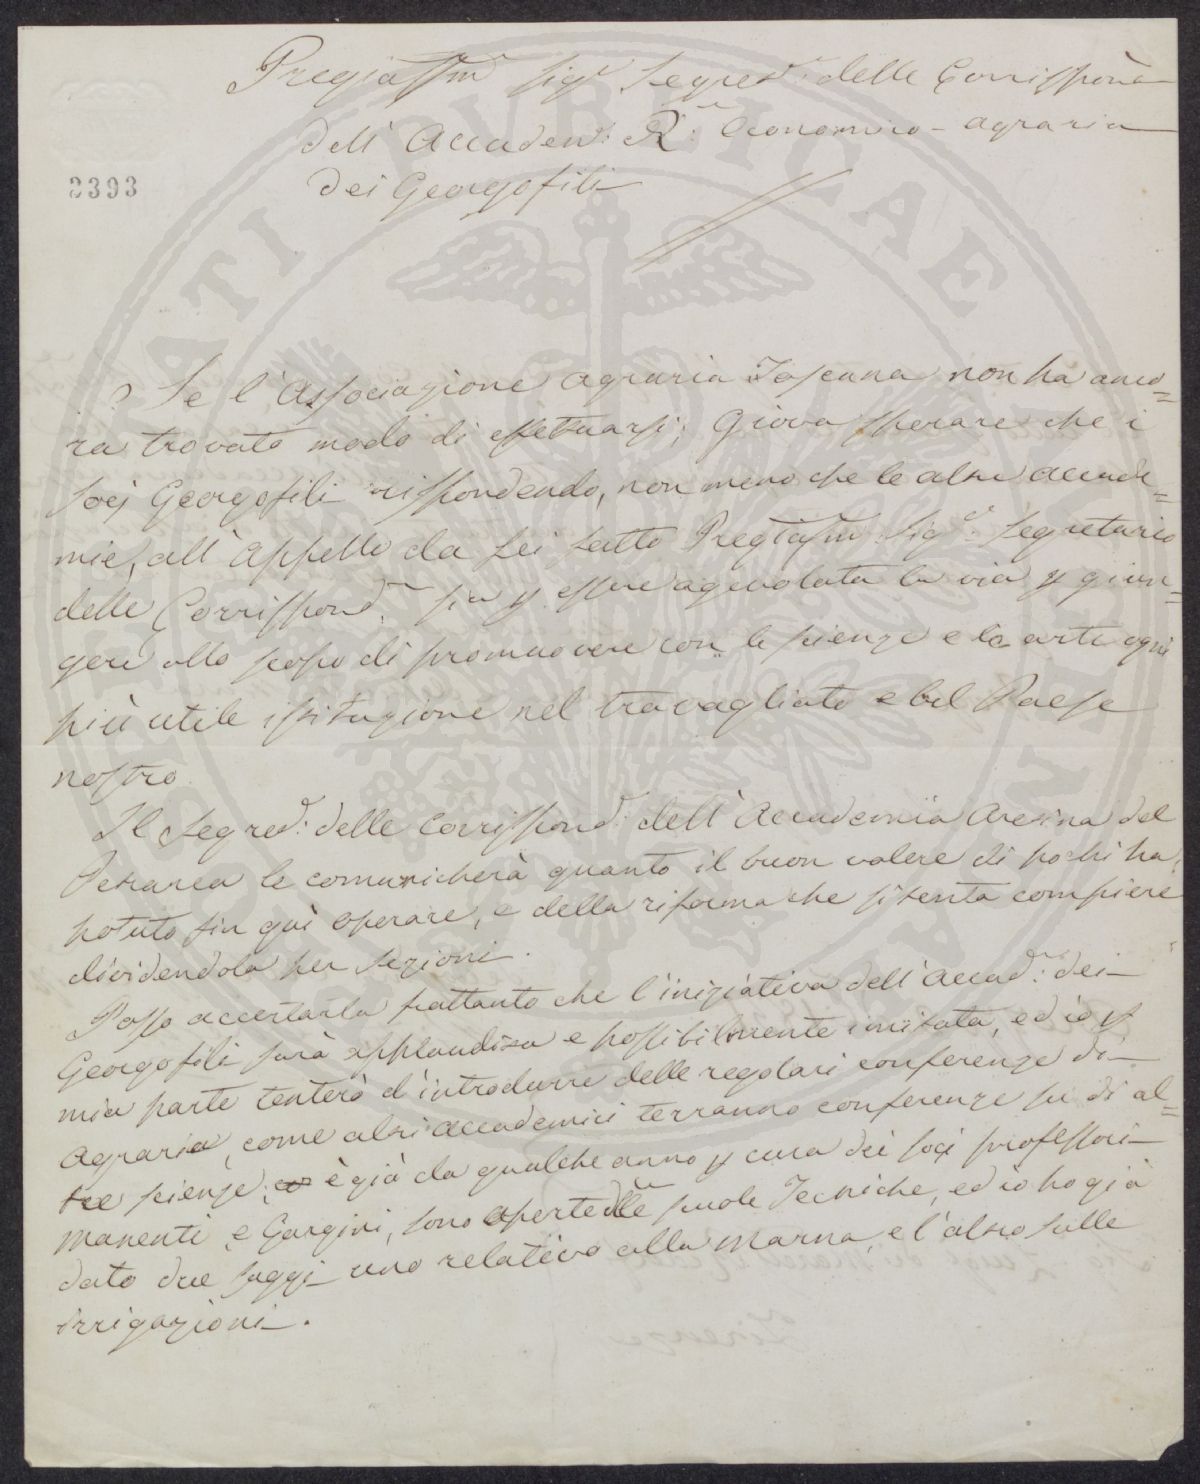 Pregiatissm Sigr Segred: delle Corrispond
dell' Accadem: R: Economico-agraria
dei Georgofili
2393
Se l'Associazione agraria Toscana non ha anco=
ra trovato modo di effetuarsi; Giova sperare che i
socj Georgofili rispondendo, non meno che le altre accade=
mie, all' appello da Lei fatto Pregiatissm Sigr Segretario
delle Corrispond. sia p essere agevolata la via p giun=
gere allo scopo di promuovere con le scienze e le arti ogni
più utile istituzione nel travagliato e bel Paese
nostro.
Il Segred: delle Corrispond: dell' Accademia Aretina del
Petrarca le comunicherà quanto il buon volere di pochi ha
potuto fin quì operare, e della riforma che si tenta compiere
dividendola per Sezioni.
Posso accertarla frattanto che l'iniziativa dell' Accad: dei
Georgofili sarà applaudita e possibilmente imitata, ed io p
mia parte tenterò d'introdurre delle regolari conferenze di
Agraria, come altri accademici terranno conferenze su di al=
tre scienze, è già da qualche anno p cura dei socj professori
Manenti e Gargini, sono aperte delle scuole Tecniche, ed io ho già
dato due saggi uno relativo alla Marna, e l'altro sulle
irrigazioni.